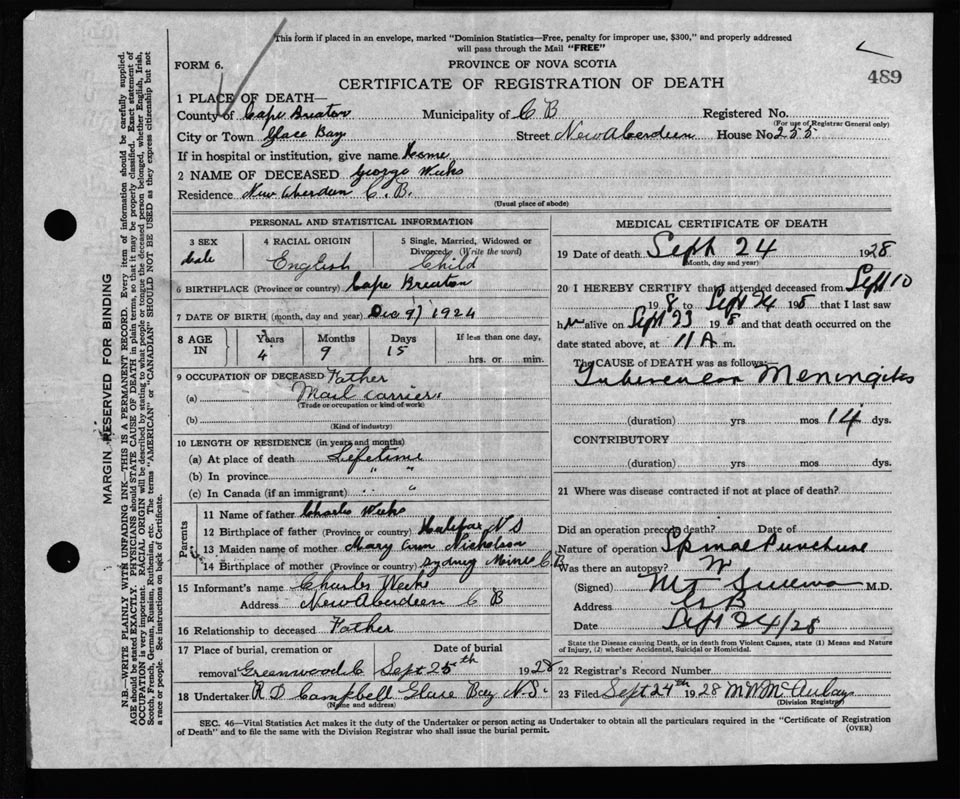 This form if placed in an envelope, marked "Dominion Statistics—Free, penalty for improper use, $300," and properly addressed
will pass through the Mail "FREE"
FORM 6.
PROVINCE OF NOVA SCOTIA
CERTIFICATE OF REGISTRATION OF DEATH
489
1 PLACE OF DEATH—
County of Cape Breaton Municipality of C B Registered No.
(For use of Registrar General only)
City or Town Glace Bay Street New Aberdeen House No. 255
If in hospital or institution, give name Home
2 NAME OF DECEASED George Weeks
Residence New Aberdeen C.B.
(Usual place of abode)
PERSONAL AND STATISTICAL INFORMATION
3 SEX 4 RACIAL ORIGIN 5 Single, Married, Widowed or
Divorced (Write the word)
Male English Child
6 BIRTHPLACE (Province or country) Cape Breaton
7 DATE OF BIRTH (month, day and year) Dec 9 1924
8 AGE IN Years Months Days If less than one day,
4 9 15 hrs. or min.
9 OCCUPATION OF DECEASED Father
(a) Mail carrier
(Trade or occupation or kind of work)
(b)
(Kind of industry)
10 LENGTH OF RESIDENCE (in years and months)
(a) At place of death Lifetime
(b) In province " "
(c) In Canada (if an immigrant) " "
Parents
11 Name of father Charls Weeks
12 Birthplace of father (Province or country) Halifax N S
13 Maiden name of mother Mary Ann Nicholson
14 Birthplace of mother (Province or country) Sydney Mines C.B
15 Informant's name Charles Weeks
Address New Aberdeen C B
16 Relationship to deceased Father
17 Place of burial, cremation or Date of burial
removal Greenwood C Sept 25th 1928
18 Undertaker R D Campbell Glace Bay N.S.
(Name and address)
MEDICAL CERTIFICATE OF DEATH
19 Date of death Sept 24 1928
(Month, day and year)
20 I HEREBY CERTIFY that I attended deceased from Sept 10
198 to Sept 24 198 that I last saw
h m alive on Sept 23 198 and that death occurred on the
date stated above, at 11 A m.
The CAUSE OF DEATH was as follows:—
Tubercular Meningitis
(duration) yrs mos 14 dys.
CONTRIBUTORY
(duration) yrs mos dys.
21 Where was disease contracted if not at place of death?
Did an operation precede death? Date of
Nature of operation Spinal Puncture
Was there an autopsy?
(Signed) M.D.
Address G B
Date Sept 24/28
State the Disease causing Death, or in death from Violent Causes, state (1) Means and Nature
of Injury, (2) whether Accidental, Suicidal or Homicidal.
22 Registrar's Record Number
23 Filed Sept 24th 1928 M W McAulay
(Division Registrar)
SEC. 46—Vital Statistics Act makes it the duty of the Undertaker or person acting as Undertaker to obtain all the particulars required in the "Certificate of Registration
of Death" and to file the same with the Division Registrar who shall issue the burial permit.
(OVER)
MARGIN RESERVED FOR BINDING
N.B.—WRITE PLAINLY WITH UNFADING INK—THIS IS A PERMANENT RECORD. Every item of information should be carefully supplied.
AGE should be stated EXACTLY. PHYSICIANS should STATE CAUSE OF DEATH in plain terms, so that it may be properly classified. Exact statement of
OCCUPATION is very important. RACIAL ORIGIN will be described by stating to what people or tongue the deceased person belonged, whether English, Irish,
Scotch, French, German, Russian, Ruthenian, etc. The terms "AMERICAN" or "CANADIAN" SHOULD NOT BE USED as they express citizenship but not
a race or people. See instructions on back of Certificate.